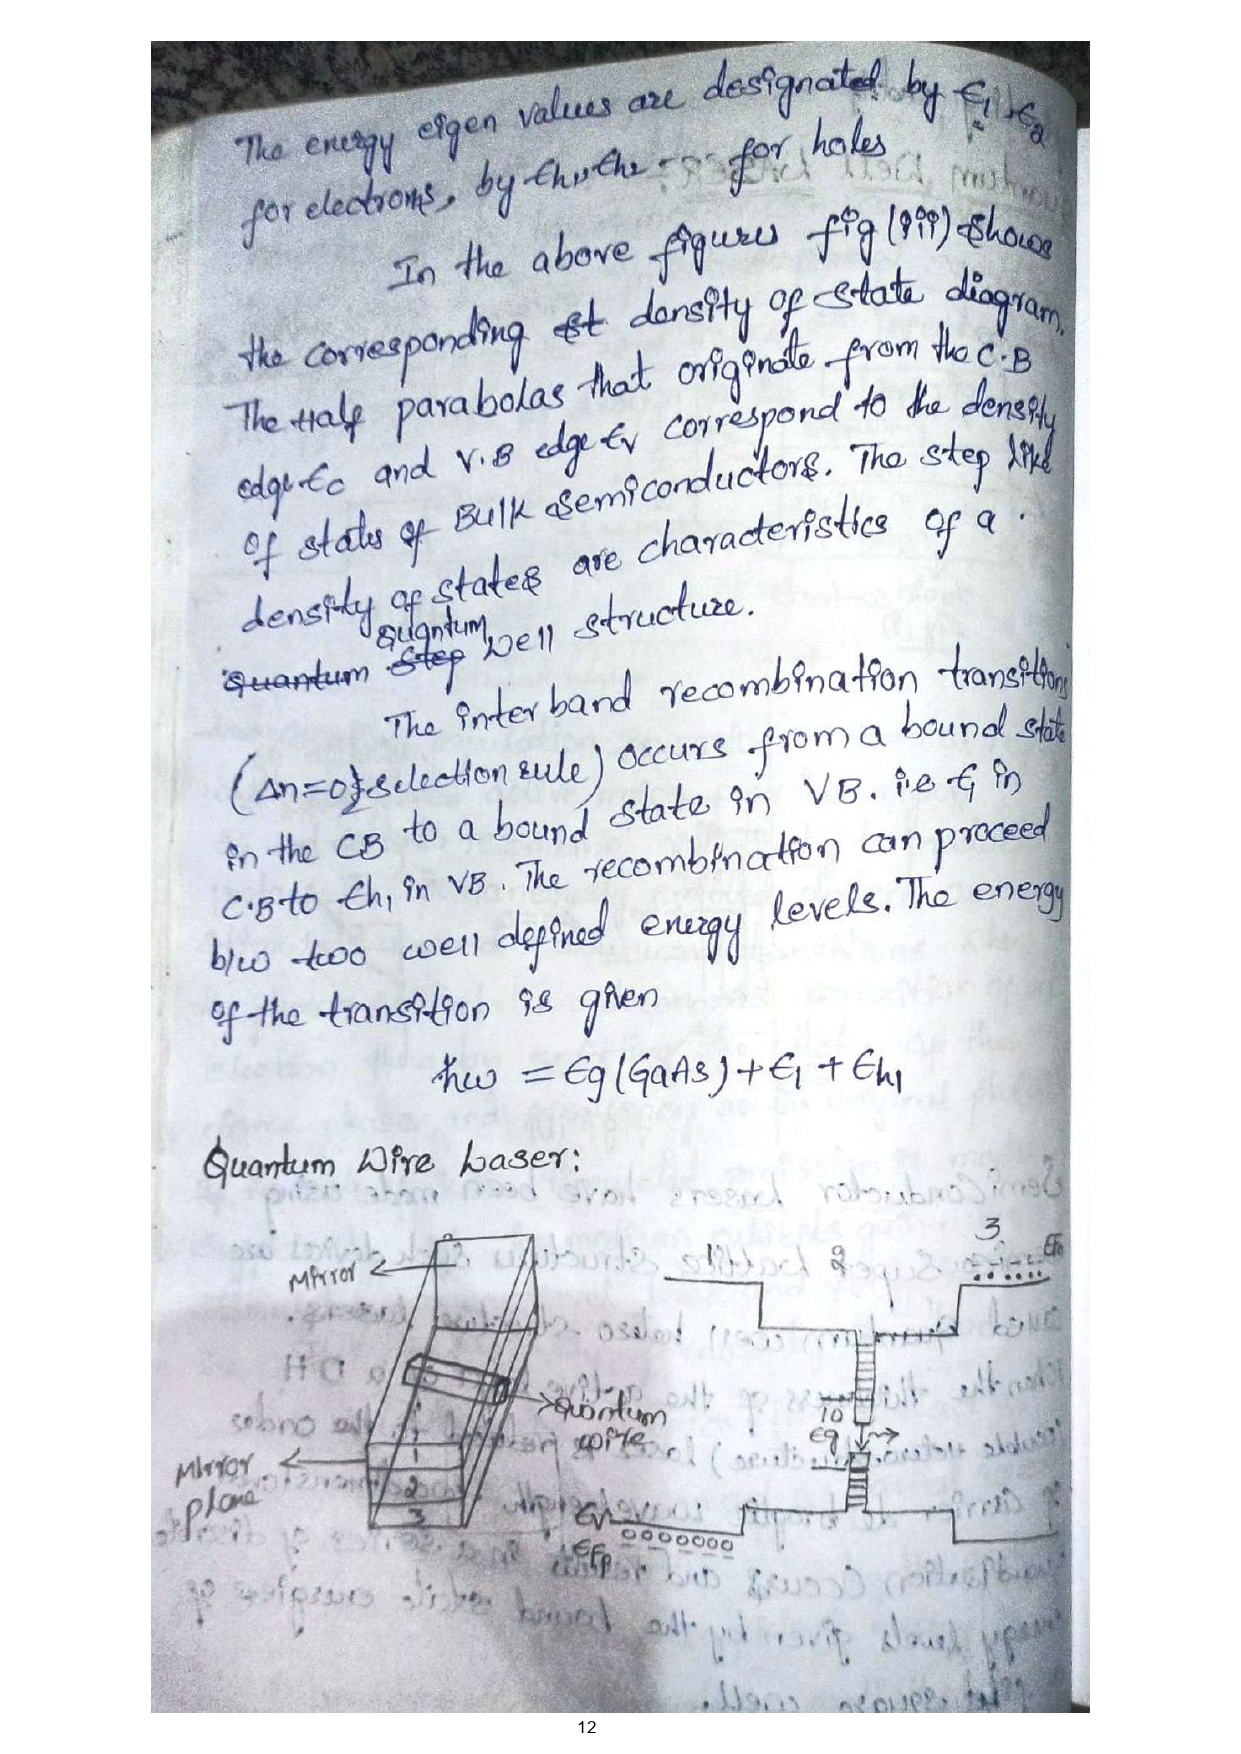 The energy eigen values are designated by E1, E2
for electrons, by Eh1, Eh2 - for holes
In the above figures fig (iii) shows
the corresponding st density of state diagram.
The Half parabolas that originate from the C.B
edge Ec and V.B edge Ev correspond to the density
of states of Bulk semiconductors. The step like
density of states are characteristics of a
Quantum
Quantum Step well structure.
The inter band recombination transitions
(Δn=0; selection rule) occurs from a bound state
in the CB to a bound state in VB. i.e E1 in
C.B to Eh1 in VB. The recombination can proceed
b/w two well defined energy levels. The energy
of the transition is given
ħω = Eg (GaAs) + E1 + Eh1
Quantum Wire Laser:
Mirror
Quantum
wire
Mirror
plane
1
2
3
1
2
3
EFn
10
Eg
Ev
EFp
12